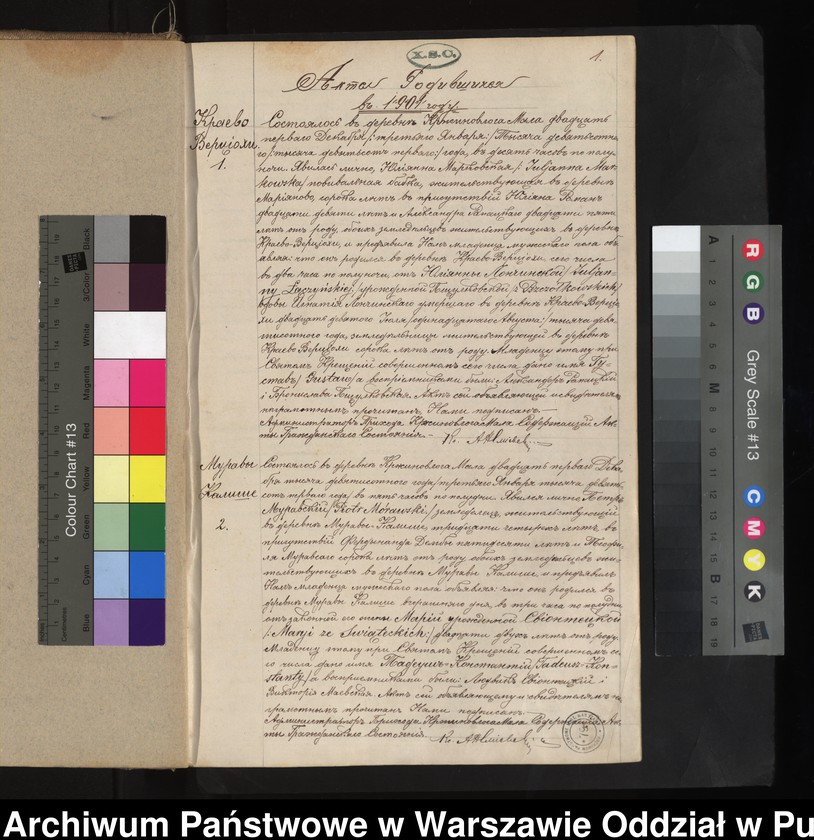 X.S.C.
1.
Акта Родившихся
въ 1901 году
Краево
Верціохи
1.
Состоялось въ деревнѣ Кржиновлога Мала двадцать
перваго Декабря /: третьяго Января :/ тысяча девятьсотна
го /: тысяча девятьсотъ перваго :/ года, въ десять часовъ по полу
ночи. Явилась лично, Юліянна Марковская /: Juljanna Mar
kowska / повивальная бабка, жительствующая въ деревнѣ
Маріяново, сорока лѣтъ въ присутствіи Юліяна
двадцати девяти лѣтъ и Александра двадцати пяти
лѣтъ отъ роду, обоихъ земледѣльцевъ жительствующихъ въ деревнѣ
Краево-Верціохи, и предъявила Намъ младенца мужескаго пола объ
являя: что онъ родился въ деревнѣ Краево-Верціохи сего числа
въ два часа по полуночи, отъ Юліянны Лончинской / Juljan-
ny Łączyńskiej / урожденной
вдовы Игнатія Лончинскаго умершаго въ деревнѣ Краево-Верціо
хи двадцать девятаго Іюля /: одинадцатаго Августа :/ тысяча девя
тисотнаго года, земледѣльцы жительствующей въ деревнѣ
Краево-Верціохи сорока лѣтъ отъ роду. Младенцу этому при
Святомъ Крещеніи совершенномъ сего числа дано имя Гу-
ставъ / Gustaw / а воспріемниками были: Александръ
и Бронислава Актъ сей объявляющей и свидѣтелямъ
неграмотнымъ прочитанъ, Нами подписанъ —
Администраторъ Прихода Кржиновлога Мала Содержащій Ак-
ты Гражданскаго Состоянія — Кс.
Муравы
Калише
2.
Состоялось въ деревнѣ Кржиновлога Мала двадцать перваго Дека
бря тысяча девятисотнаго года / третьяго Января тысяча девять
сотъ перваго года / въ пять часовъ по полудни. Явился лично Петръ
Муравскій / Piotr Mórawski / земледѣлецъ, жительствующій
въ деревнѣ Муравы-Калише, тридцати четырехъ лѣтъ, въ
присутствіи Фердинанда Дембы пятидесяти лѣтъ и Теофи-
ля Муравскаго сорока лѣтъ отъ роду обоихъ земледѣльцевъ жи-
тельствующихъ въ деревнѣ Муравы Калише, и предъявилъ
Намъ младенца мужескаго пола объявляя: что онъ родился въ
деревнѣ Муравы Калише вчерашняго дня, въ три часа по полудни
отъ законной его жены Маріи урожденной Свіонтецкой
/: Maryi ze Świąteckich :/ двадцати двухъ лѣтъ отъ роду.
Младенцу этому при Святомъ Крещеніи совершенномъ се-
го числа дано имя Тадеушъ-Константій / Tadeusz-Kon-
stanty / а воспріемниками были: Людвикъ Свіонтецкій и
Викторія Маевская. Актъ сей объявляющему и свидѣтелямъ не
грамотнымъ прочитанъ Нами подписанъ
Администраторъ Прихода Кржиновлога Мала Содержащій Ак-
ты Гражданскаго Состоянія. Кс.
Colour Chart #13
Blue Cyan Green Yellow Red Magenta White 3/Color Black
Centimetres
R G B
Grey Scale #13
C M Y K
A 1 2 3 4 5 6 M 8 9 10 11 12 13 14 15 B 17 18 19
Archiwum Państwowe w Warszawie Oddział w Pu